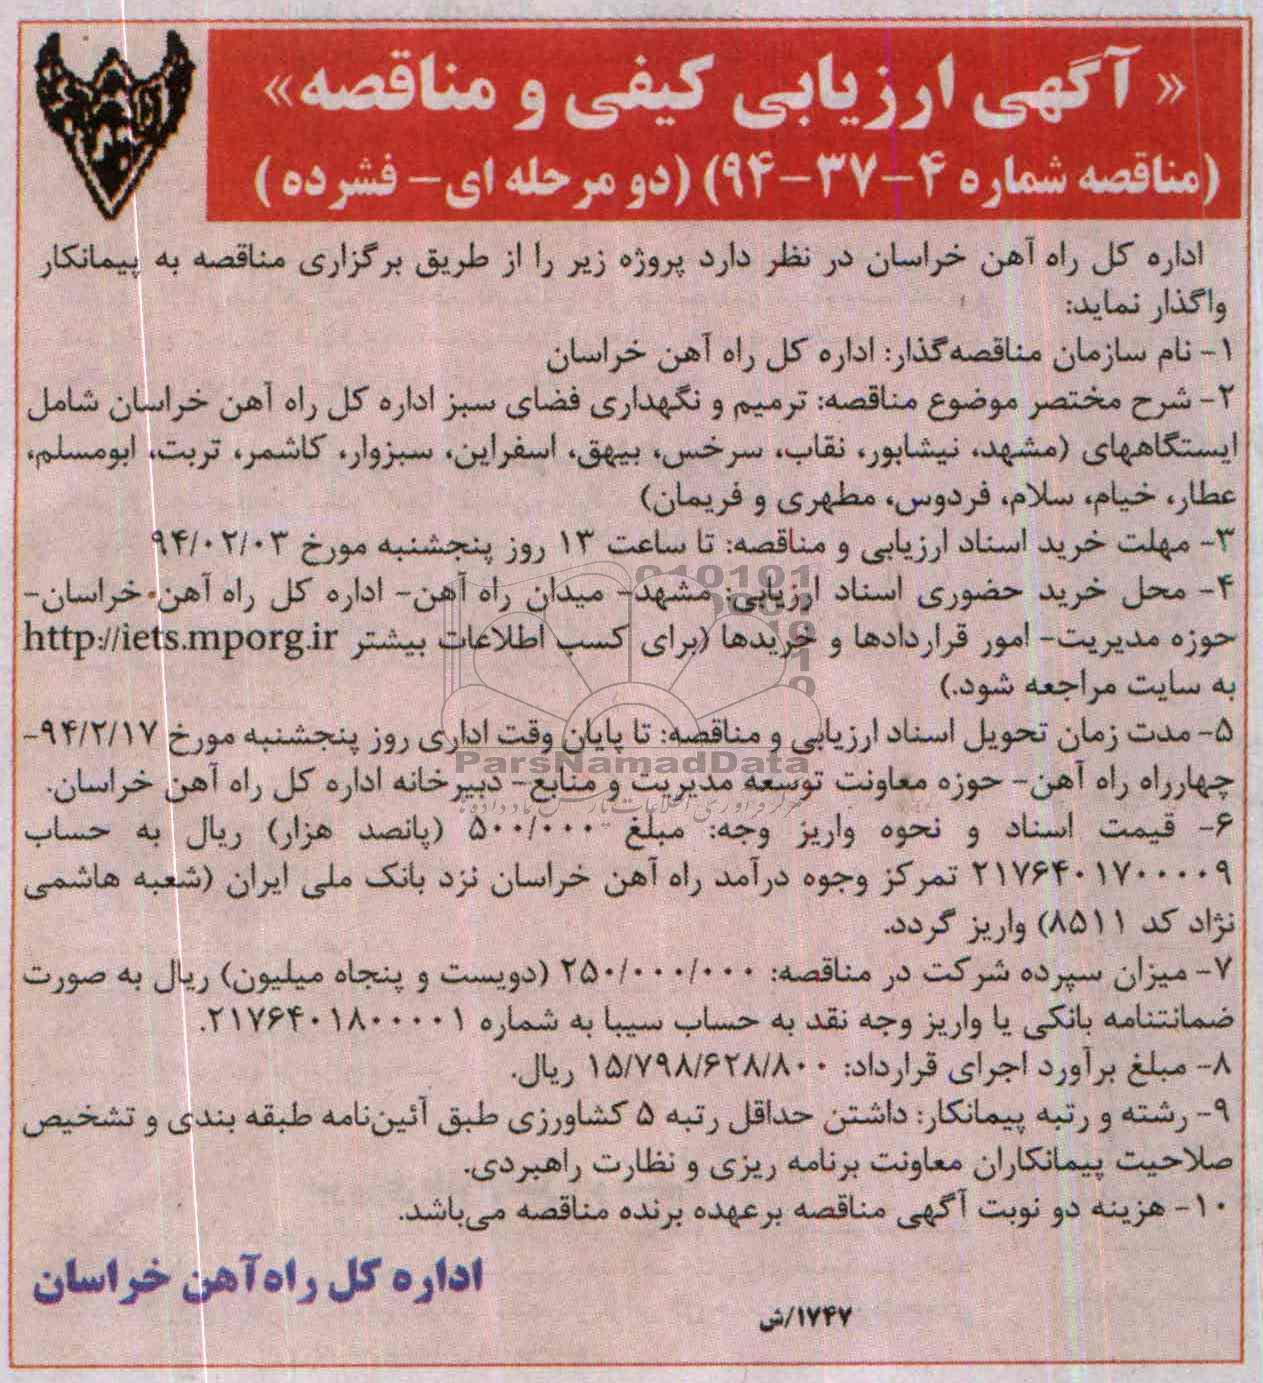 « آگهی ارزیابی کیفی و مناقصه»
(مناقصه شماره ۴-۳۷-۹۴) (دو مرحله ای- فشرده )
اداره کل راه آهن خراسان در نظر دارد پروژه زیر را از طریق برگزاری مناقصه به پیمانکار
واگذار نماید:
۱- نام سازمان مناقصه‌گذار: اداره کل راه آهن خراسان
۲- شرح مختصر موضوع مناقصه: ترمیم و نگهداری فضای سبز اداره کل راه آهن خراسان شامل
ایستگاههای (مشهد، نیشابور، نقاب، سرخس، بیهق، اسفراین، سبزوار، کاشمر، تربت، ابومسلم،
عطار، خیام، سلام، فردوس، مطهری و فریمان)
۳- مهلت خرید اسناد ارزیابی و مناقصه: تا ساعت ۱۳ روز پنجشنبه مورخ ۹۴/۰۲/۰۳
۴- محل خرید حضوری اسناد ارزیابی: مشهد- میدان راه آهن- اداره کل راه آهن خراسان-
حوزه مدیریت- امور قراردادها و خریدها (برای کسب اطلاعات بیشتر http://iets.mporg.ir
به سایت مراجعه شود.)
۵- مدت زمان تحویل اسناد ارزیابی و مناقصه: تا پایان وقت اداری روز پنجشنبه مورخ ۹۴/۲/۱۷-
ParsNamadData
چهارراه راه آهن- حوزه معاونت توسعه مدیریت و منابع- دبیرخانه اداره کل راه آهن خراسان.
۶- قیمت اسناد و نحوه واریز وجه: مبلغ ۵۰۰/۰۰۰ (پانصد هزار) ریال به حساب
۲۱۷۶۴۰۱۷۰۰۰۰۹ تمرکز وجوه درآمد راه آهن خراسان نزد بانک ملی ایران (شعبه هاشمی
نژاد کد ۸۵۱۱) واریز گردد.
۷- میزان سپرده شرکت در مناقصه: ۲۵۰/۰۰۰/۰۰۰ (دویست و پنجاه میلیون) ریال به صورت
ضمانتنامه بانکی یا واریز وجه نقد به حساب سیبا به شماره ۲۱۷۶۴۰۱۸۰۰۰۰۱.
۸- مبلغ برآورد اجرای قرارداد: ۱۵/۷۹۸/۶۲۸/۸۰۰ ریال.
۹- رشته و رتبه پیمانکار: داشتن حداقل رتبه ۵ کشاورزی طبق آئین‌نامه طبقه بندی و تشخیص
صلاحیت پیمانکاران معاونت برنامه ریزی و نظارت راهبردی.
۱۰- هزینه دو نوبت آگهی مناقصه برعهده برنده مناقصه می‌باشد.
اداره کل راه‌آهن خراسان
۱۷۴۷/ش